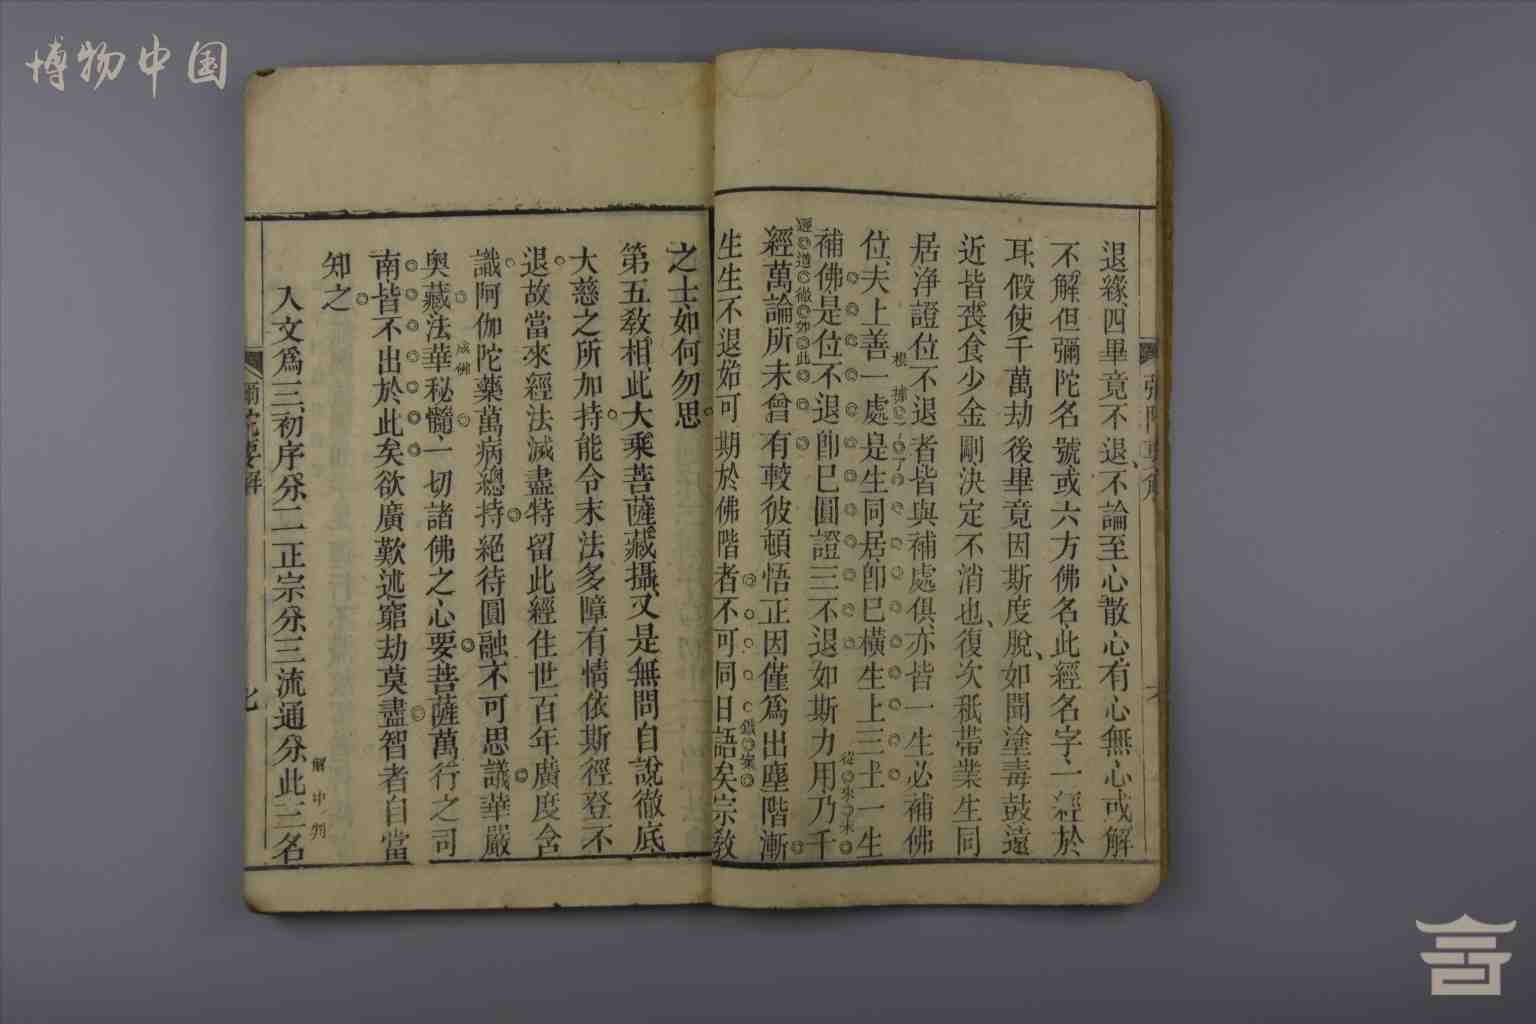 博物中国
退緣四畢竟不退不論至心散心有心無心或解
不解但彌陀名號或六方佛名此經名字一經於
耳假使千萬劫後畢竟因斯度脫如聞塗毒鼓遠
近皆喪食少金剛決定不消也復次秖帶業生同
居淨證位不退者皆與補處俱亦皆一生必補佛
位夫上善一處是生同居卽巳橫生上三土一生
補佛是位不退卽巳圓證三不退如斯力用乃千
經萬論所未曾有較彼頓悟正因僅爲出塵階漸
生生不退始可期於佛階者不可同日語矣宗敎
之士如何勿思
第五敎相此大乘菩薩藏攝又是無問自說徹底
大慈之所加持能令末法多障有情依斯徑登不
退故當來經法滅盡特留此經住世百年廣度含
識阿伽陀藥萬病總持絕待圓融不可思議華嚴
奧藏法華秘髓一切諸佛之心要菩薩萬行之司
南皆不出於此矣欲廣歎述窮劫莫盡智者自當
知之
入文爲三初序分二正宗分三流通分此三名
成佛
解中判
彌陀要解